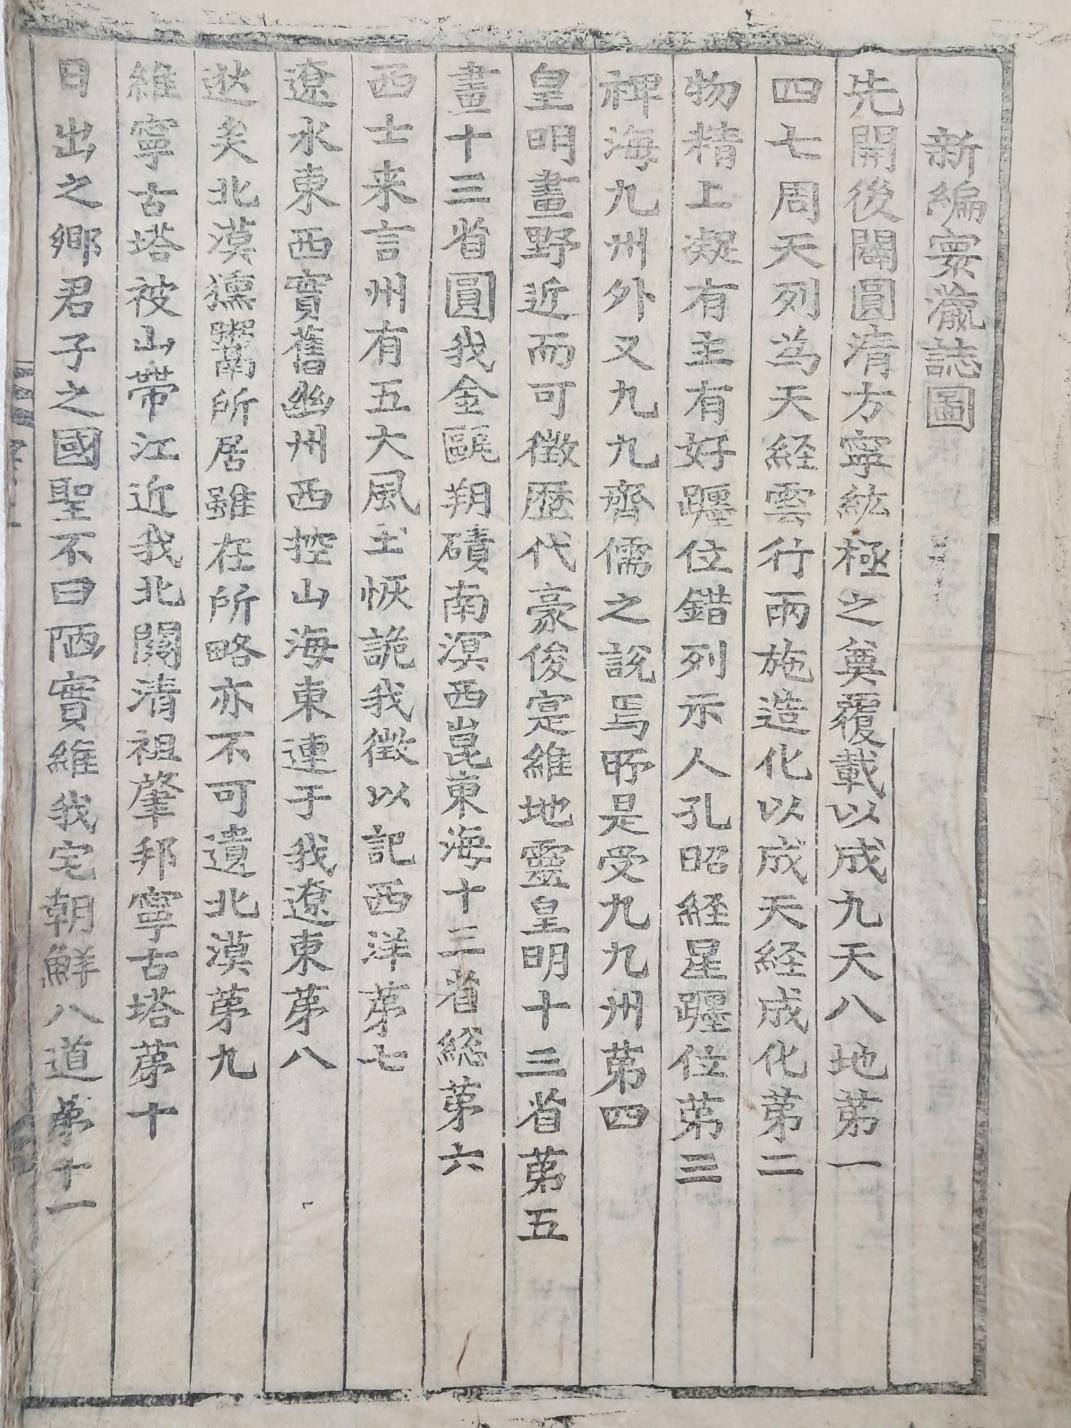 新編寰瀛誌圖
先開後闢圓清方寧紘極之奠覆載以成九天八地苐一
四七周天列為天経雲行雨施造化以成天経成化苐二
物精上凝有主有好躔位錯列示人孔昭経星躔位苐三
裨海九州外又九九齊儒之說焉㪽是受九九州苐四
皇明畫野近而可徵歴代豪俊寔維地靈皇明十三省苐五
畫十三省圓我金甌朔磧南溟西崑東海十三省総苐六
西士来言州有五大風土恢詭我徵以記西洋苐七
遼水東西實舊幽州西控山海東連于我遼東苐八
逖矣北漠獯鬻所居雖在所略亦不可遺北漠苐九
維寧古塔被山帶江近我北關清祖肇邦寧古塔苐十
日出之鄉君子之國聖不曰陋實維我宅朝鮮八道苐十一